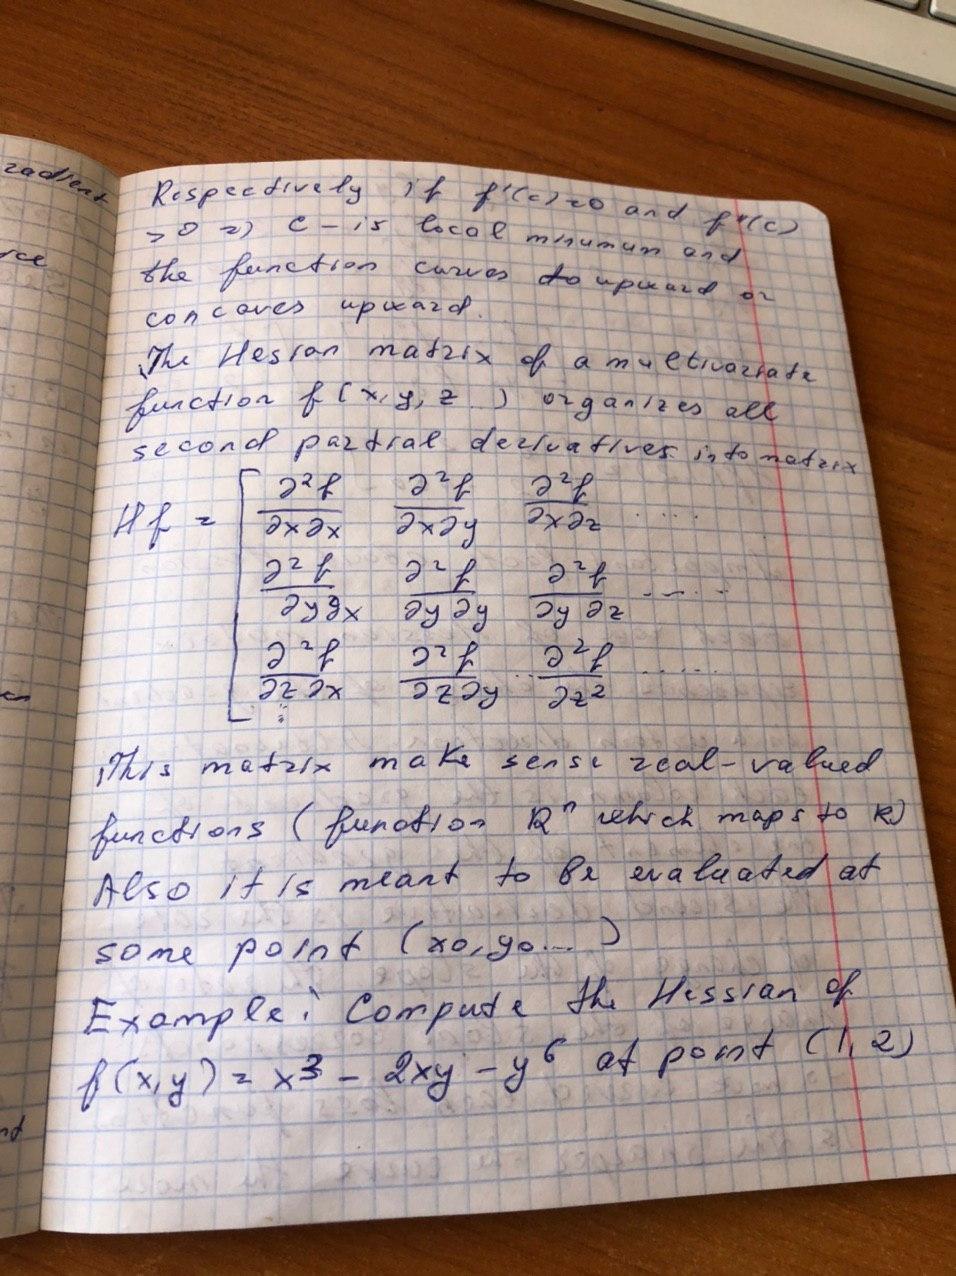 Respectively if f'(c)=0 and f"(c)
>0 => c - is local minumum and
the function curves to upward or
concaves upward.
The Hesian matrix of a multivariate
function f(x,y,z ..) organizes all
second partial derivatives into matrix
Hf = [ ∂²f/∂x∂x ∂²f/∂x∂y ∂²f/∂x∂z .....
∂²f/∂y∂x ∂²f/∂y∂y ∂²f/∂y∂z .....
∂²f/∂z∂x ∂²f/∂z∂y .. ∂²f/∂z² .....
⋮
This matrix make sense real-valued
functions (function Rⁿ which maps to R)
Also it is meant to be evaluated at
some point (x0,y0...)
Example: Compute the Hessian of
f(x,y) = x³ - 2xy - y⁶ at point (1,2)